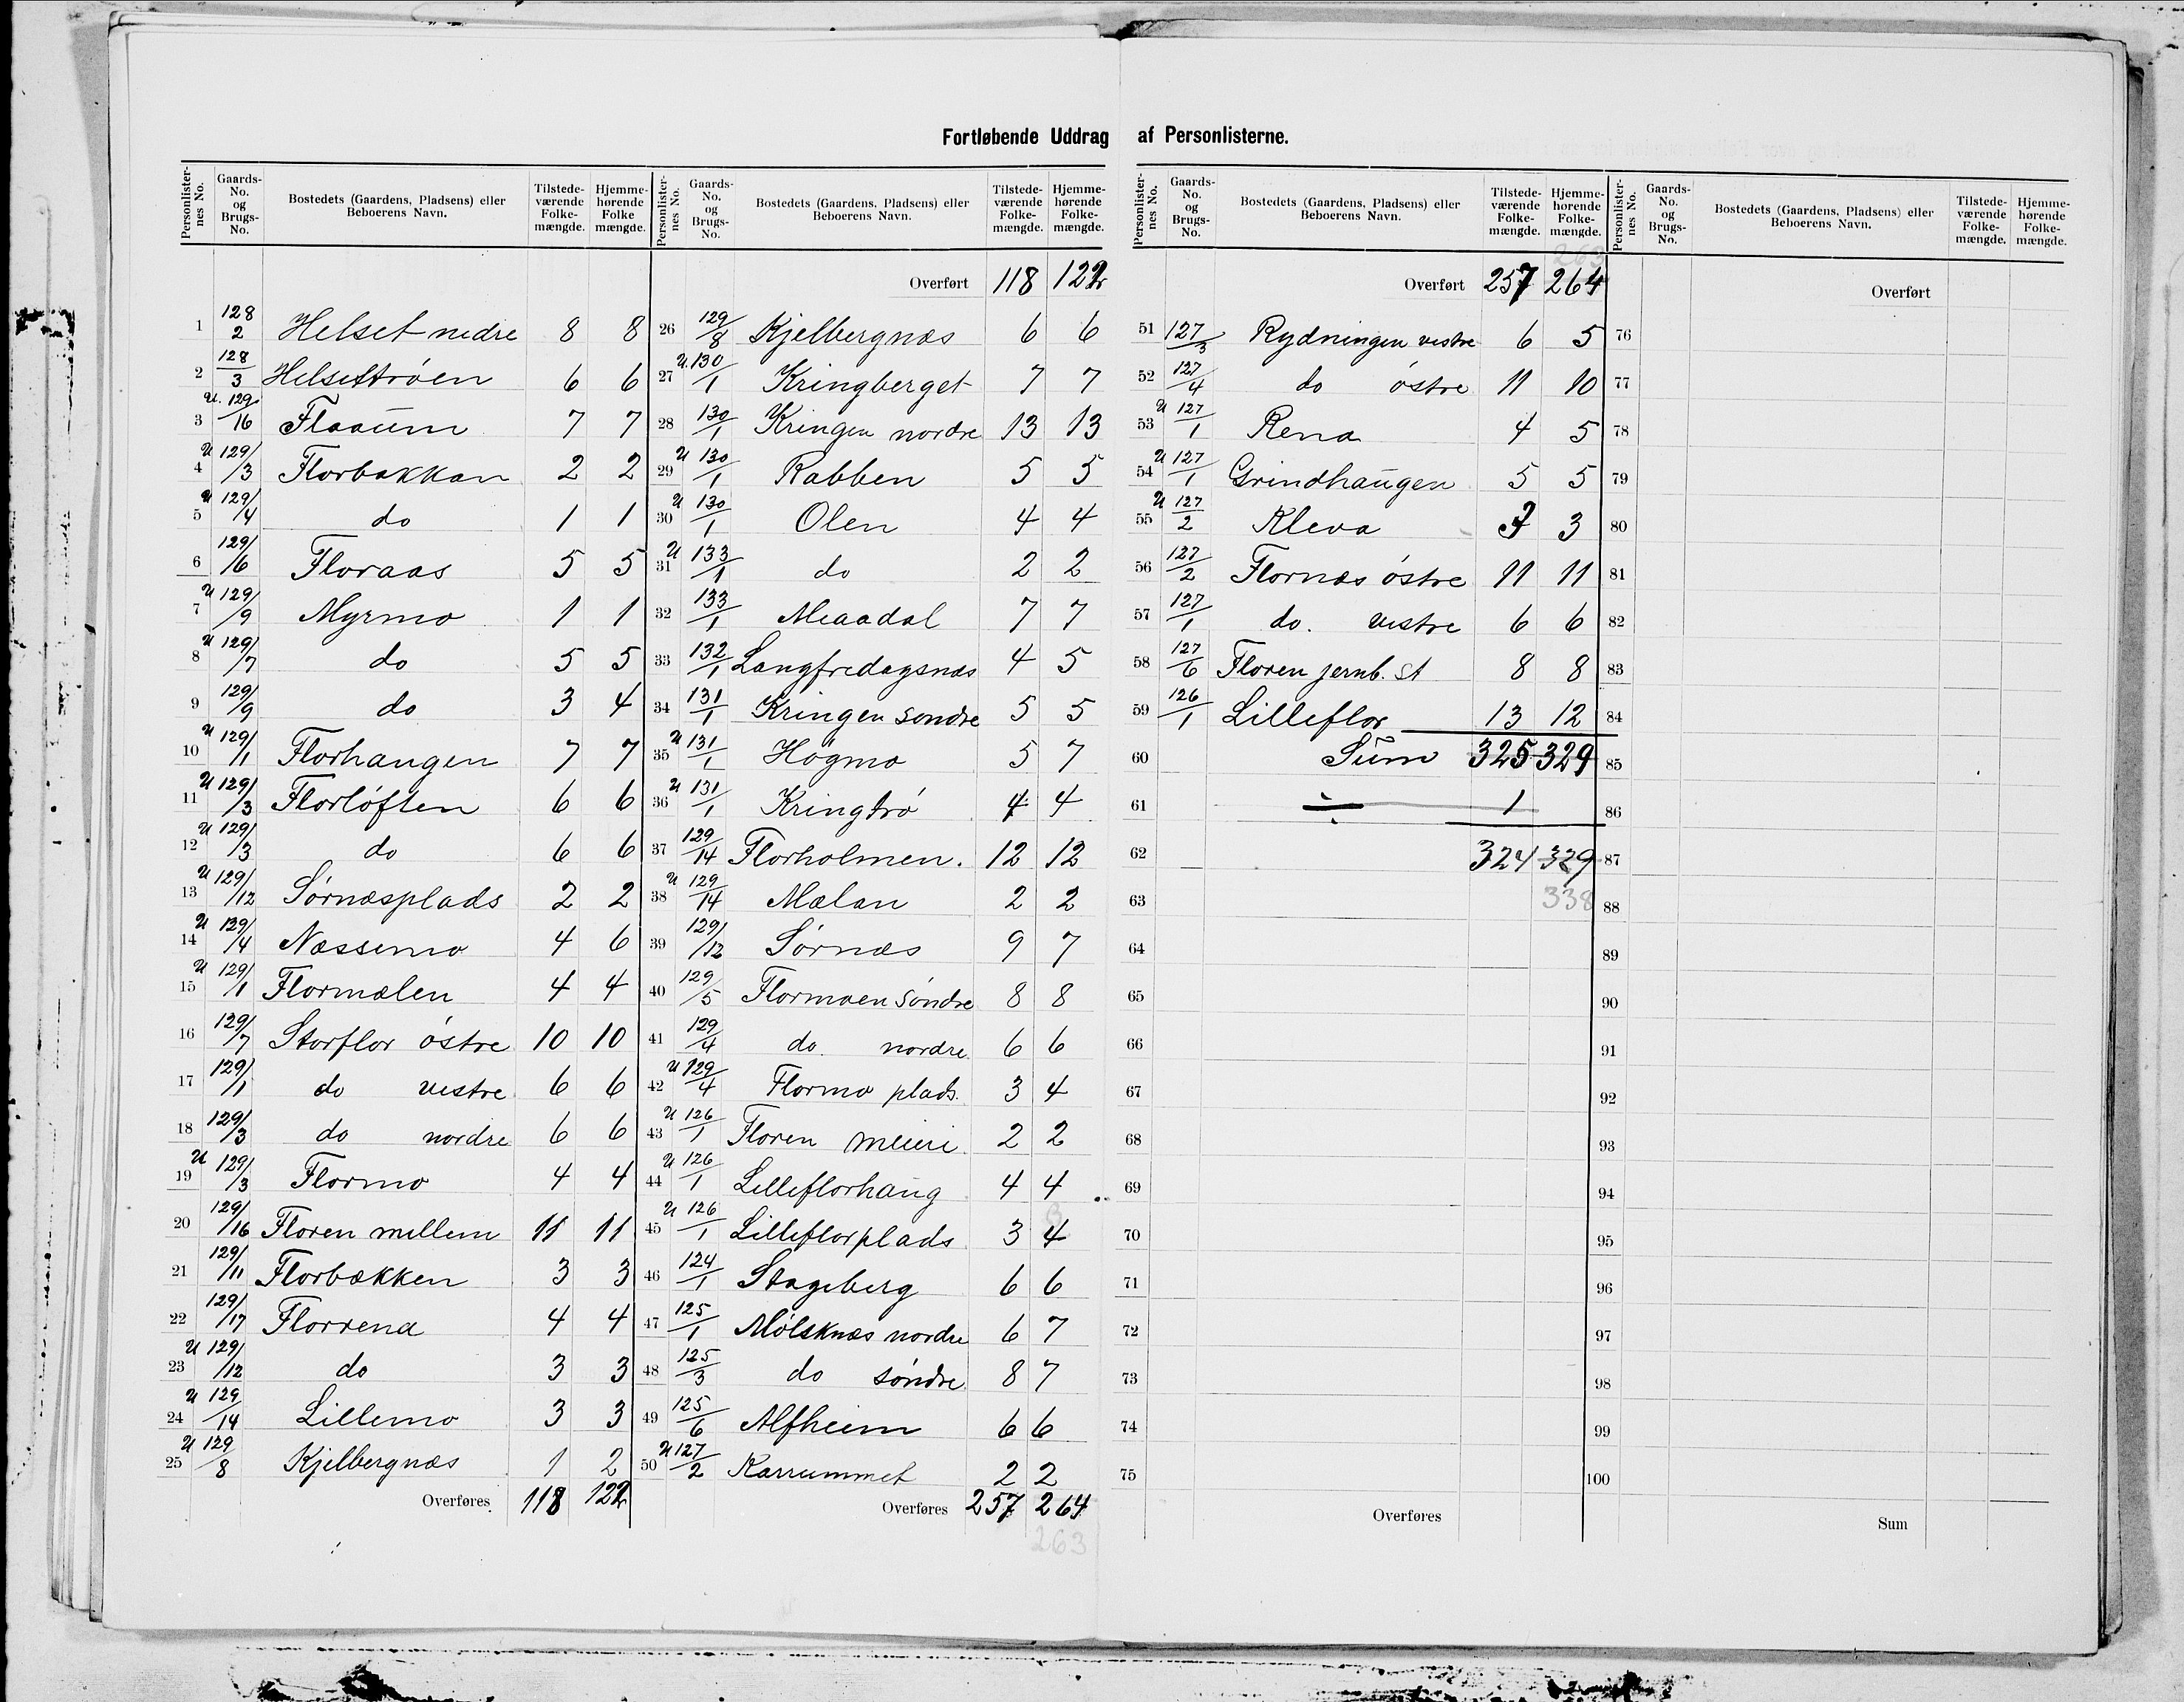 Fortløbende Uddrag af Personlisterne.
Personlister-nes No. | Gaards-No. og Brugs-No. | Bostedets (Gaardens, Pladsens) eller Beboerens Navn. | Tilstede-værende Folke-mængde. | Hjemme-hørende Folke mængde.
1 128/2 Helset nedre 8 8
2 128/3 Helsettrøen 6 6
3 U. 129/16 Flaaum 7 7
4 U 129/3 Florbakkan 2 2
5 U 129/4 do 1 1
6 129/6 Floraas 5 5
7 U 129/9 Myrmo 1 1
8 U 129/7 do 5 5
9 129/9 do 3 4
10 U 129/1 Florhaugen 7 7
11 U 129/3 Florløften 6 6
12 U 129/3 do 6 6
13 U 129/12 Sørnæsplads 2 2
14 U 129/4 Næssemo 4 6
15 U 129/1 Flormælen 4 4
16 129/7 Storflor østre 10 10
17 129/1 do vestre 6 6
18 129/3 do nordre 6 6
19 U 129/3 Flormo 4 4
20 129/16 Floren mellem 11 11
21 129/11 Florbækken 3 3
22 129/17 Florrena 4 4
23 U 129/12 do 3 3
24 U 129/14 Lillemo 3 3
25 U 129/8 Kjelbergnæs 1 2
Overføres 118 122
Personlister-nes No. | Gaards-No. og Brugs-No. | Bostedets (Gaardens, Pladsens) eller Beboerens Navn. | Tilstede-værende Folke-mængde. | Hjemme-hørende Folke-mængde.
Overført 118 122
26 129/8 Kjelbergnæs 6 6
27 U. 130/1 Kringberget 7 7
28 130/1 Kringen nordre 13 13
29 U 130/1 Rabben 5 5
30 U 130/1 Olen 4 4
31 U 133/1 do 2 2
32 133/1 Meaadal 7 7
33 132/1 Langfredagsnæs 4 5
34 131/1 Kringen søndre 5 5
35 U 131/1 Høgmo 5 7
36 U 131/1 Kringtrø 4 4
37 129/14 Florholmen. 12 12
38 U 129/14 Mælan 2 2
39 129/12 Sørnæs 9 7
40 129/5 Flormoen søndre 8 8
41 129/4 do nordre 6 6
42 U 129/4 Flormo plads. 3 4
43 U 126/1 Floren meieri 2 2
44 U 126/1 Lilleflorhaug 4 4
45 U 126/1 Lilleflorplads 3 4 3
46 124/1 Stageberg 6 6
47 125/1 Mølsknæs nordre 6 7
48 125/3 do søndre 8 7
49 125/6 Alfheim 6 6
50 U 127/2 Karrummet 2 2
Overføres 257 264
263
Personlister-nes No. | Gaards-No. og Brugs-No. | Bostedets (Gaardens, Pladsens) eller Beboerens Navn. | Tilstede-værende Folke-mængde. | Hjemme-hørende Folke-mængde.
263
Overført 257 264
51 127/3 Rydningen vestre 6 5
52 127/4 do østre 11 10
53 U 127/1 Rena 4 5
54 U 127/1 Grindhaugen 5 5
55 U 127/2 Kleva 3
56 127/2 Flornæs østre 11 11
57 127/1 do. vestre 6 6
58 127/6 Floren jernb. st 8 8
59 126/1 Lilleflor 13 12
60 Sum 325 329
61 ÷ 1
62 324 329
63 338
64
65
66
67
68
69
70
71
72
73
74
75
Overføres
Personlister-nes No. | Gaards-No. og Brugs-No. | Bostedets (Gaardens, Pladsens) eller Beboerens Navn. | Tilstede-værende Folke-mængde. | Hjemme-hørende Folke-mængde.
Overført
76
77
78
79
80
81
82
83
84
85
86
87
88
89
90
91
92
93
94
95
96
97
98
99
100
Sum